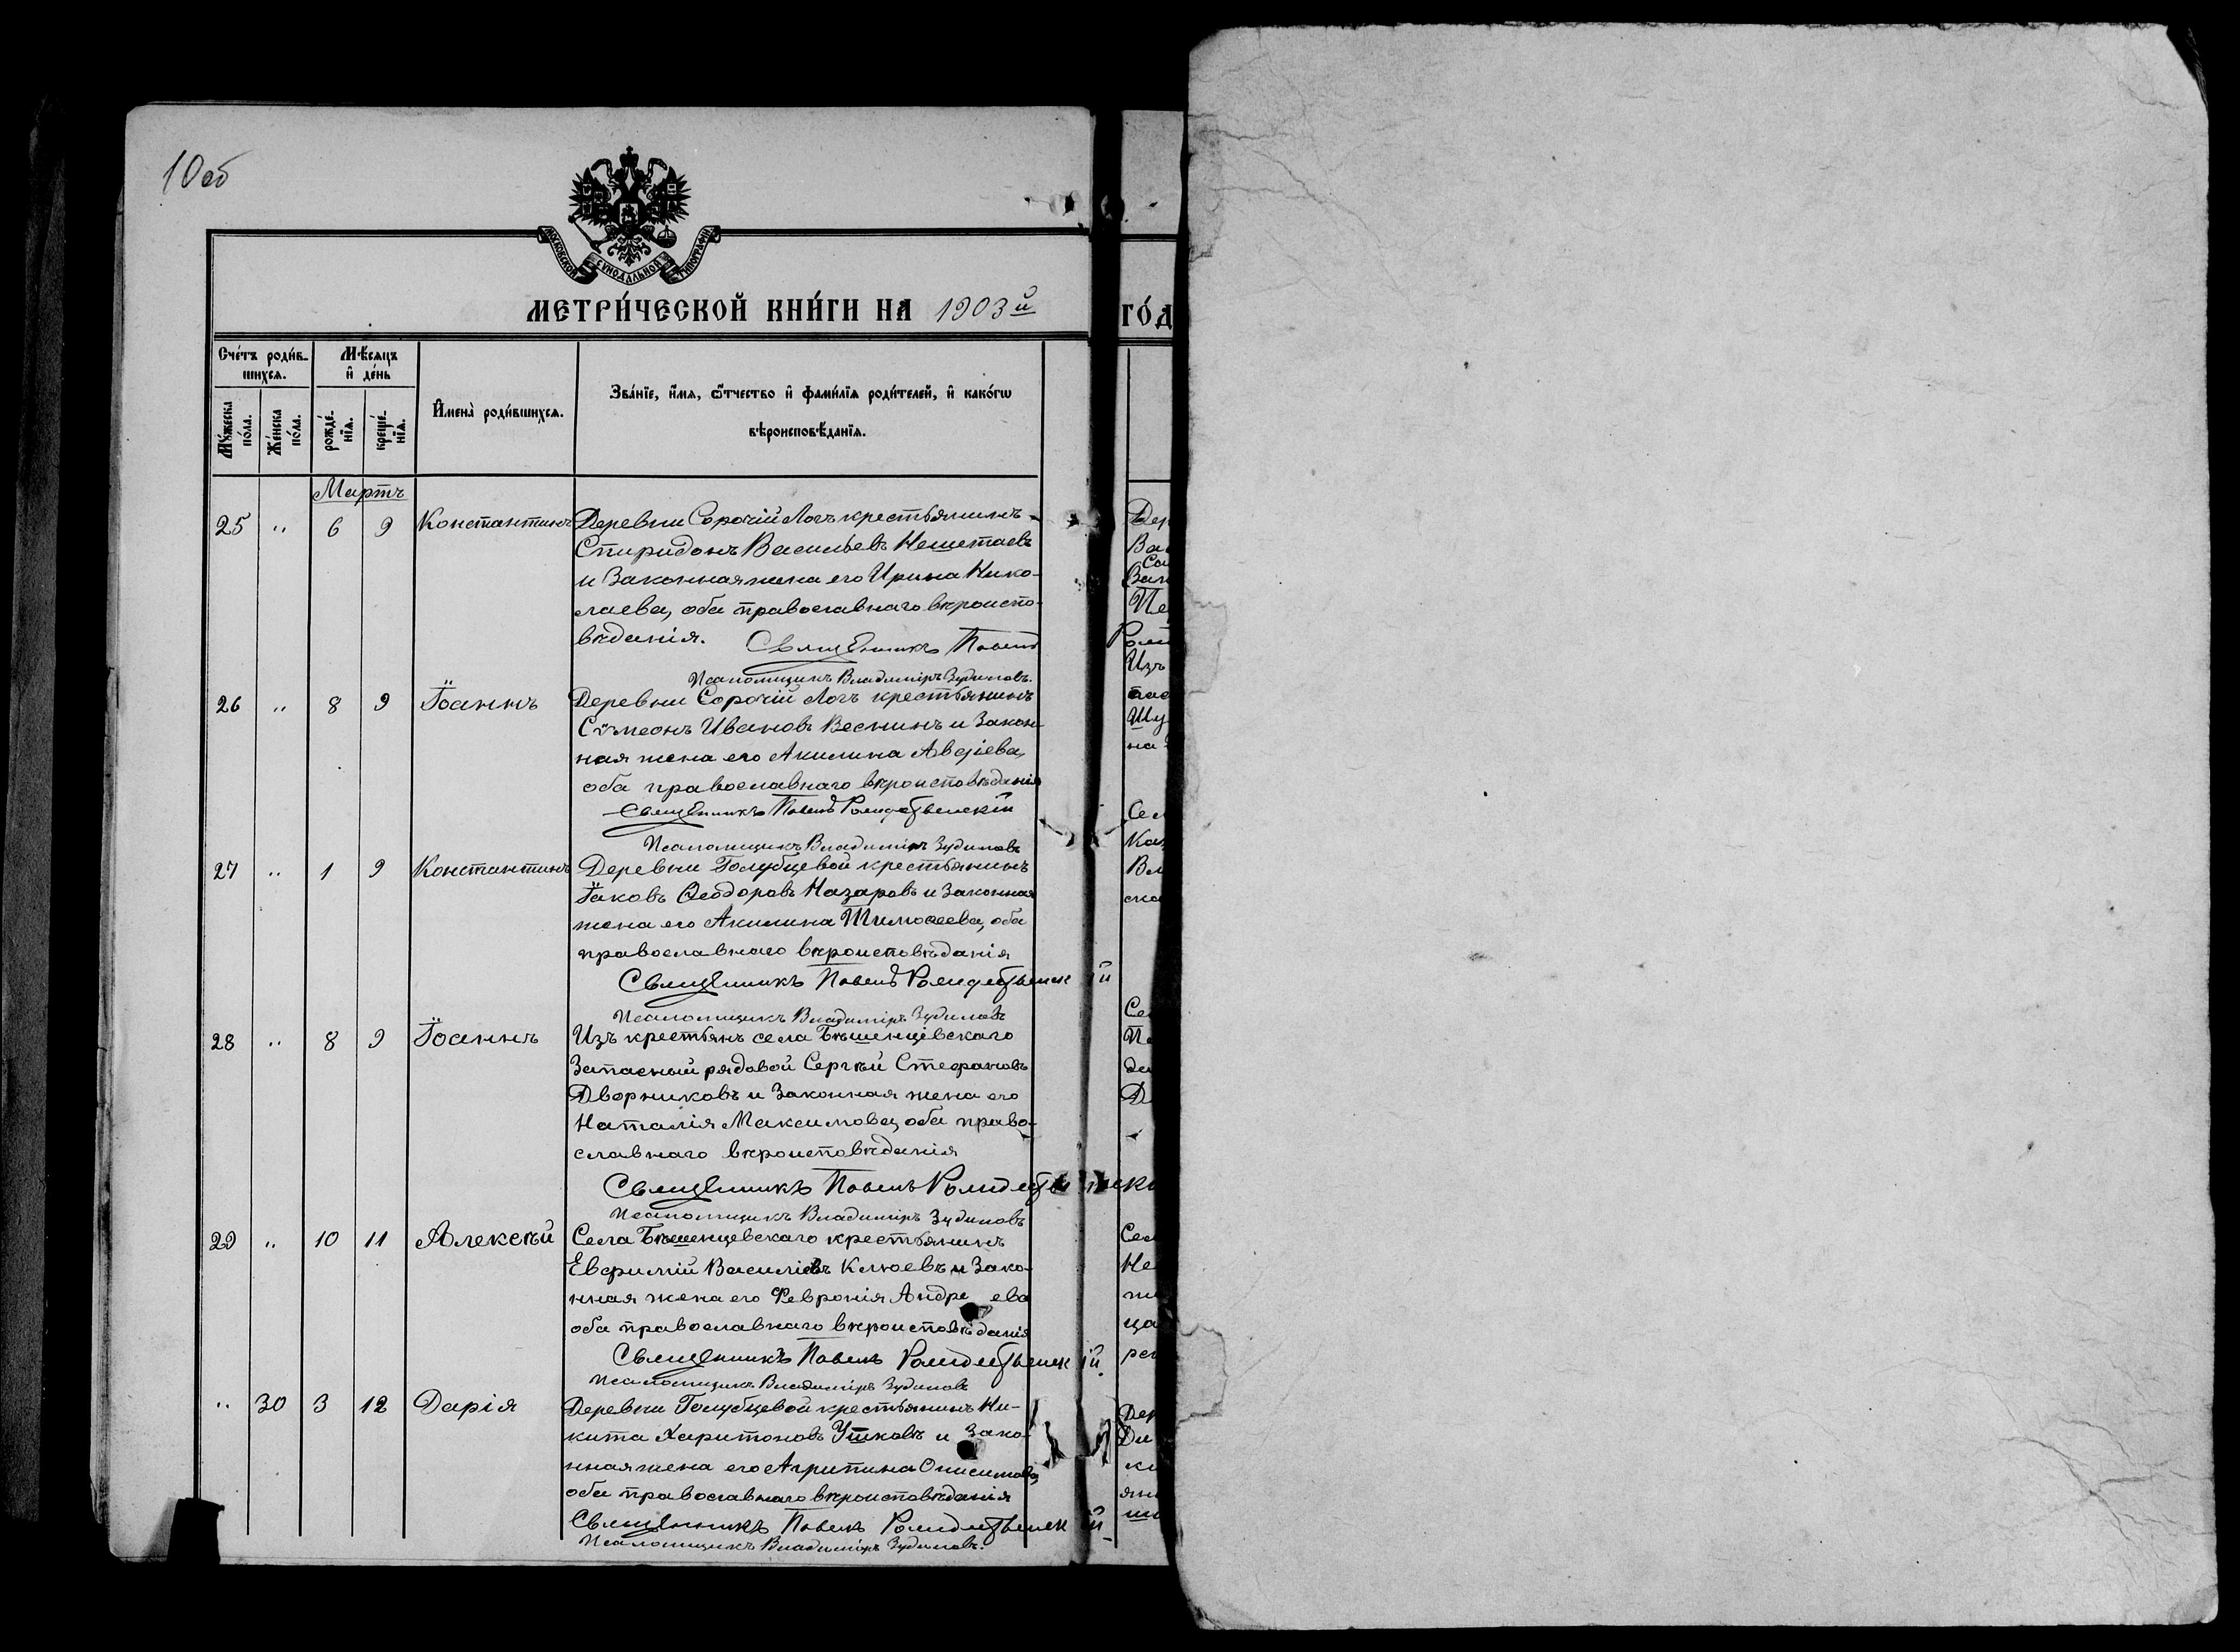 10об
МОСКОВСКОЙ СѴНОДАЛЬНОЙ ТИПОГРАФІИ
МЕТРИ́ЧЕСКОЙ КНИ́ГИ НА 1903й ГО́Д
Сче́тъ роди́в-
шихсѧ.
Мѣ́сѧцъ
и҆ де́нь
Мꙋ́жеска
по́ла.
Же́нска
по́ла.
рожде́-
нїѧ.
креще́-
нїѧ.
И҆мена̀ роди́вшихсѧ.
Зва́нїе, и҆́мѧ, ѻ҆́тчество и҆ фами́лїѧ роди́телей, и҆ како́гѡ
вѣроисповѣ́данїѧ.
Мартъ
25 " 6 9 Константинъ Деревни Сорочій Логъ крестьянинъ
Спиридонъ Васильевъ Нешетаевъ
и Законная жена его Ирина Нико-
лаева, оба православнаго вѣроиспо-
вѣданія. Священникъ Павелъ
Псаломщикъ Владиміръ Зудиловъ.
26 " 8 9 Іоаннъ Деревни Сорочій Логъ крестьянинъ
Сѵмеонъ Ивановъ Веснинъ и Закон-
ная жена его Акилина Авдіева,
оба православнаго вѣроисповѣданія
Священникъ Павелъ Рождественскій
Псаломщикъ Владиміръ Зудиловъ
27 " 1 9 Константинъ Деревни Голубцевой крестьянинъ
Іаковъ Ѳеодоровъ Назаровъ и Законная
жена его Акилина Тимоѳеева, оба
православнаго вѣроисповѣданія
Священникъ Павелъ Рождественскій
Псаломщикъ Владиміръ Зудиловъ
28 " 8 9 Іоаннъ Изъ крестьянъ села Бѣшенцевскаго
Запасный рядовой Сергѣй Стефановъ
Дворниковъ и Законная жена его
Наталія Максимова, оба право-
славнаго вѣроисповѣданія
Священникъ Павелъ Рождественски
Псаломщикъ Владиміръ Зудиловъ
29 " 10 11 Алексѣй Села Бѣшенцевскаго крестьянинъ
Евфимій Василіевъ Клюевъ и Зако-
нная жена его Февронія Андреева
оба православнаго вѣроисповѣданія
Священникъ Павелъ Рождественскій.
Псаломщикъ Владиміръ Зудиловъ
" 30 3 12 Дарія Деревни Голубцевой крестьянинъ Ни-
кита Харитоновъ Ушковъ и Зако-
нная жена его Агрипина Онисимова,
оба православнаго вѣроисповѣданія
Священникъ Павелъ Рождественскій
Псаломщикъ Владиміръ Зудиловъ.